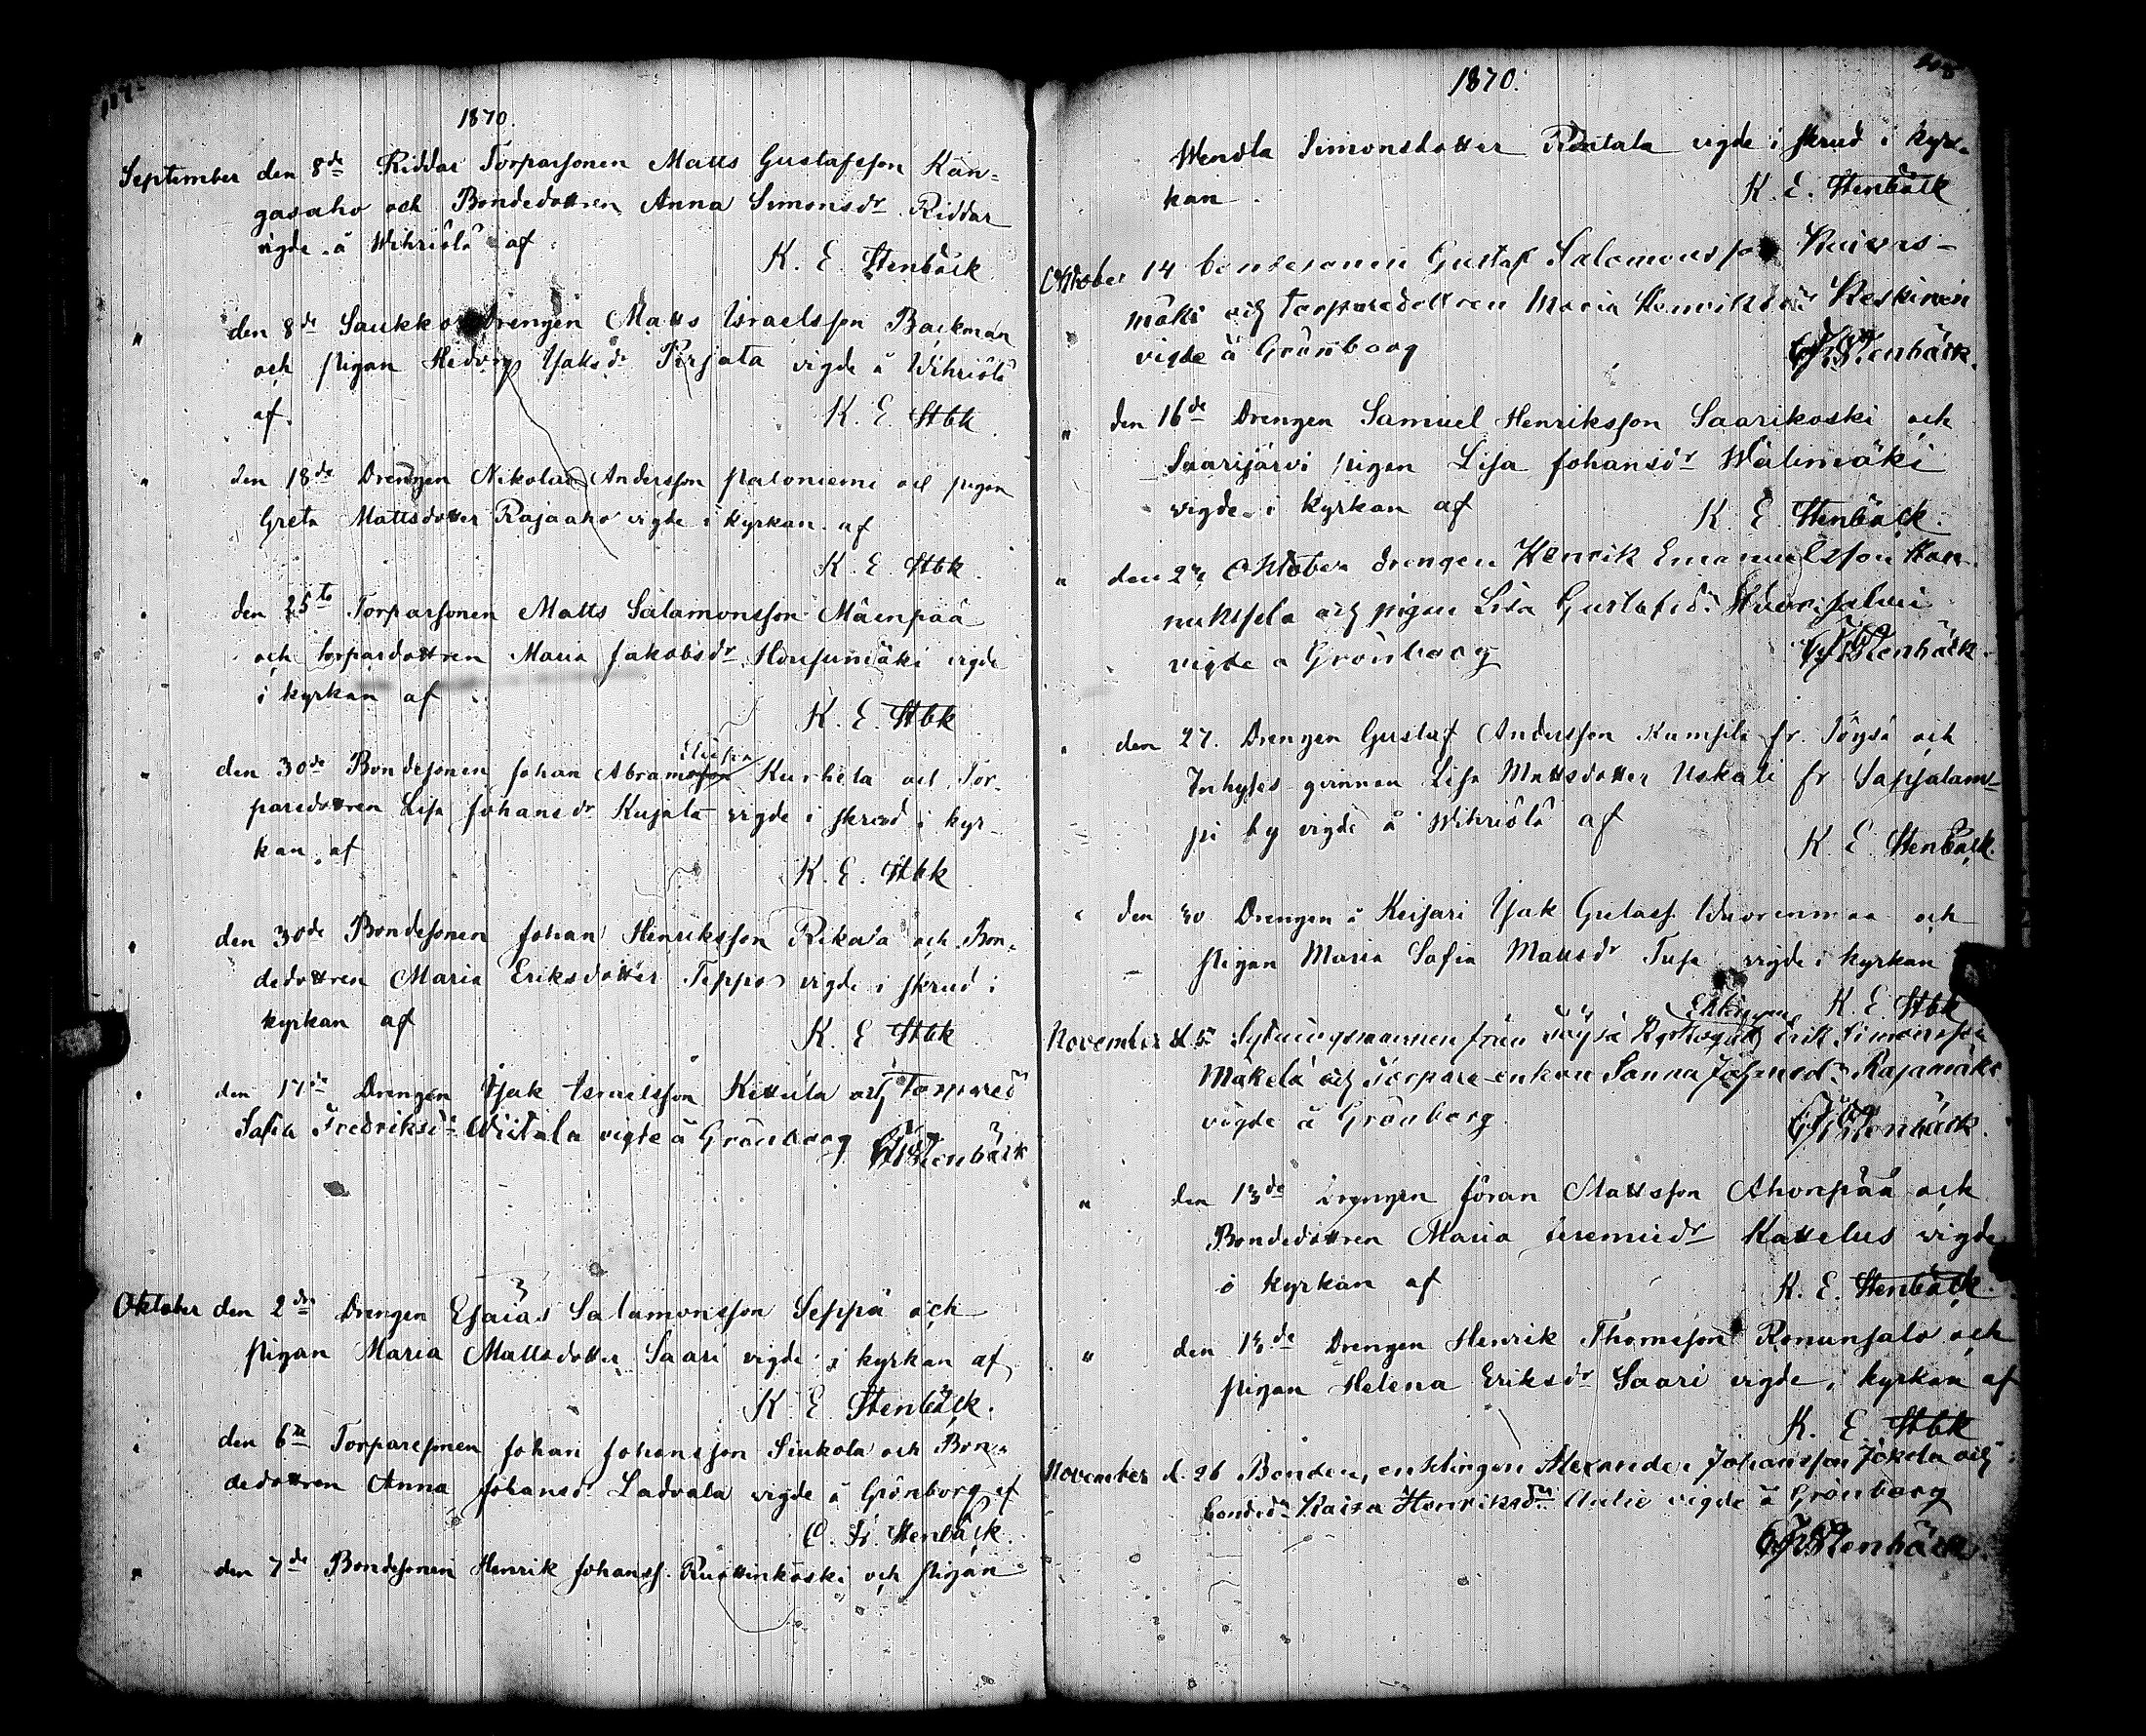 1870.
September den 8de Riddar Torparsonen Matts Gustafsson Kan-
gasaho och Bondedottren Anna Simonsdr Riddar
vigde å Wihriölä af
K. E. Stenbäck
" den 8de Saukko Drengen Matts Israelsson Backman
och pigan Hedvig Isaksdr Perjata vigde å Wihriölä
af.
K. E. Stbk
" den 18de Drengen Nikolas Andersson Paloniemi och pigan
Greta Mattsdotter Rajaaho vigde i kyrkan af
K. E. Stbk.
" den 25te Torparsonen Matts Salamonsson Mäenpää
och Torpardottren Maria Jakobsdr vigde
i kyrkan af
K. E. Stbk
" den 30de Bondesonen Johan Abramsson Kurhela och Tor-
paredottren Lisa Johansdr Kujala vigde i skrud i kyr-
kan af
K. E. Stbk
" den 30de Bondesonen Johan Henriksson Rikala och Bon-
dedottren Maria Eriksdotter Teppo vigde i skrud i
kyrkan af
K. E. Stbk
" den 17de Drengen Isak Israelsson Kettula och Torpared
Safia Fredriksdr Wiitala vigde å Grönborg Stenbäck
Oktober den 2dra Drengen Esaias Salamonsson Seppä och
pigan Maria Mattsdotter Saari vigde i kyrkan af
K. E. Stenbäck.
" den 6te Torparesonen Johan Johansson Siukola och Bon-
dedottren Anna Johansdr Ladvala vigde å Grönborg af
C. F. Stenbäck.
" den 7de Bondesonen Henrik Johanss. Ruottinkoski och pigan
1870.
Wendla Simonsdotter Rantala vigde i skrud i kyr-
kan.
K. E. Stenbäck
Oktober 14 bondesonen Gustaf Salomonsson
mäki och torparedottren Maria Henriksdr Keskinen
vigde å Grönborg
Stenbäck.
" den 16de Drengen Samuel Henriksson Saarikoski och
Saarijärvi pigan Lisa Johansdr Wälimäki
vigde i kyrkan af
K. E. Stenbäck.
" den Oktober drengen Henrik Emanuelsson Han-
nuksela och pigan Lisa Gustafsdr
vigde å Grönborg
Stenbäck.
" den 27. Drengen Gustaf Andersson Kumpula fr. Töysä och
Inhyses qvinnan Lisa Mattsdotter Uskali fr Sapsalam-
pi by vigde å Wihriölä af
K. E. Stenbäck.
" den 30 Drengen å Keisari Isak Gustafs. Wuorenmaa och
pigan Maria Safia Mattsdr Tusa vigde i kyrkan
K. E. Stbk
Enklingen
November d. 5 Sytningsmannen från Töysä Erik Simonsson
Mäkelä och Torpare enkan Sanna Johansdr Rajamäki
vigde å Grönborg
Stenbäck.
" den 13de Drengen Jöran Mattsson Ahonpää och
Bondedottren Maria Jeremiedr Kattelus vigde
i kyrkan af
K. E. Stenbäck.
" den 13de Drengen Henrik Thomsson Ronunsalo och
pigan Helena Eriksdr Saari vigde i kyrkan af
K. E. Stbk
November d. 26 Bonden, enklingen Alexander Johansson Jokela och
bonded. Kaisa Henriksdr vigde å Grönborg
Stenbäck.